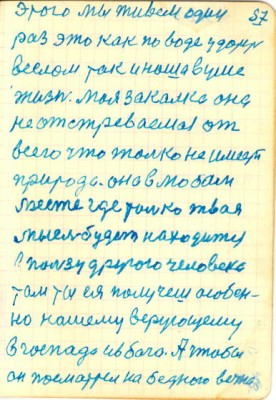 этого мы живем один 57
раз это как по воде ударит
веслом так и наша в уме
жизн. Моя закалка она
не отстреваема от
всего что толко не имеет
природа. она в любом
месте где толко твая
мысел будет находитц
в ползу другого человека
там ты ея получеш особен-
но нашему верующему
в господа и в бога. А чтобы
он посмотрел на бедного